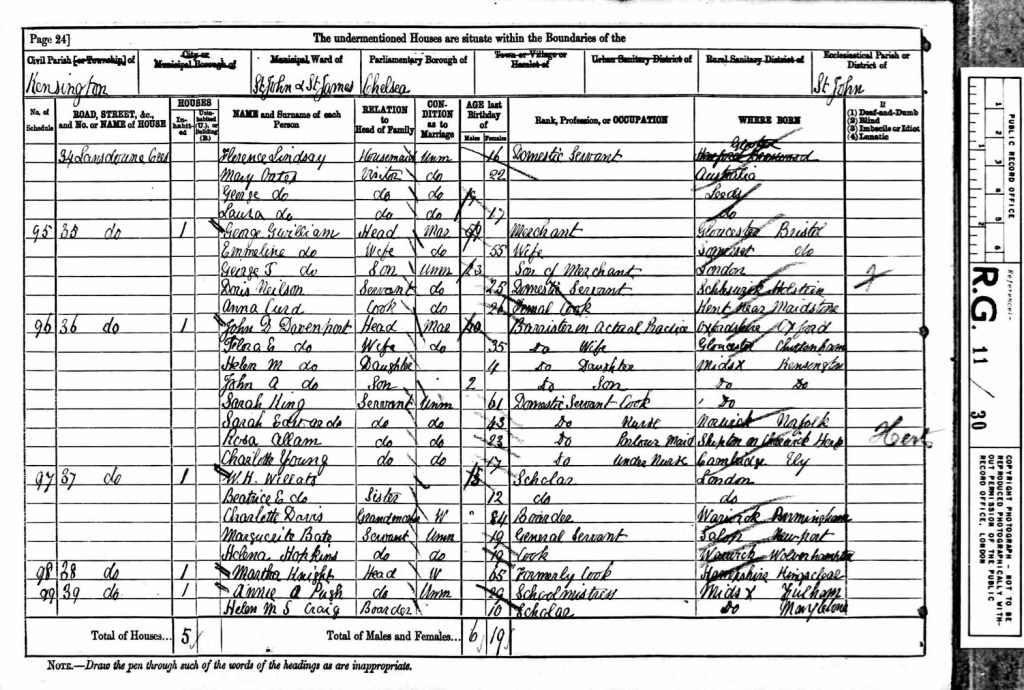 Page 24]
The undermentioned Houses are situate within the Boundaries of the
Civil Parish [or Township] of
City or Municipal Borough of
Municipal Ward of
Parliamentary Borough of
Town or Village or Hamlet of
Urban Sanitary District of
Rural Sanitary District of
Ecclesiastical Parish or District of
Kensington St John & St James Chelsea St John
No. of Schedule
ROAD, STREET, &c., and No. or NAME of HOUSE
HOUSES
Inhabited
Uninhabited (U.), or Building (B.)
NAME and Surname of each Person
RELATION to Head of Family
CONDITION as to Marriage
AGE last Birthday of
Males Females
Rank, Profession, or OCCUPATION
WHERE BORN
If
(1) Deaf-and-Dumb
(2) Blind
(3) Imbecile or Idiot
(4) Lunatic
34 Lansdowne Cres Florence Lindsay Housemaid Unm 16 Domestic Servant
Mary Oates Visitor do 22 Australia
George do do do 19 Leeds
Laura do do do 17 do
95 35 do 1 George Gwilliam Head Mar Merchant Gloucester Bristol
Emmeline do Wife do 55 Wife Somerset do
George T do Son Unm 23 Son of Merchant London
Doris Neilson Servant do 25 Domestic Servant Schleswik Holstein
Anna Curd Cook do 26 Cook Kent near Maidstone
96 36 do 1 John D Davenport Head Mar Barrister in Actual Practice Oxfordshire Oxford
Flora E. do Wife do 35 Do Wife Gloucester Cheltenham
Helen M do Daughter 4 Do Daughter Midsx Kensington
John A do Son 2 Do Son Do Do
Sarah King Servant Unm 61 Domestic Servant Cook Do
Sarah Edwards do do 43 Do Nurse Norwich Norfolk
Rosa Allam do do 23 Do Parlour Maid
Charlotte Young do do 17 Do Under Nurse Cambridge Ely
Herts
97 37 do 1 W. H. Willats 15 Scholar London
Beatrice E do Sister 12 do do
Charlotte Davis Grandmother W 84 Boarder Warwick Birmingham
Marguerite Bate Servant Unm 19 General Servant Salop Newport
Helena Hopkins do do 19 Cook Warwick Wolverhampton
98 38 do 1 Martha Knight Head W 65 Formerly Cook Hampshire Kingsclere
99 39 do 1 Annie A Pugh do Unm 29 Schoolmistress Midsx Fulham
Helen M S Craig Boarder 10 Scholar Do Marylebone
Total of Houses... 5 Total of Males and Females... 6 19
NOTE.—Draw the pen through such of the words of the headings as are inappropriate.
PUBLIC RECORD OFFICE
1 2 3 4 5 6
Reference:-
R.G. 11 / 30
COPYRIGHT PHOTOGRAPH - NOT TO BE REPRODUCED PHOTOGRAPHICALLY WITHOUT PERMISSION OF THE PUBLIC RECORD OFFICE, LONDON